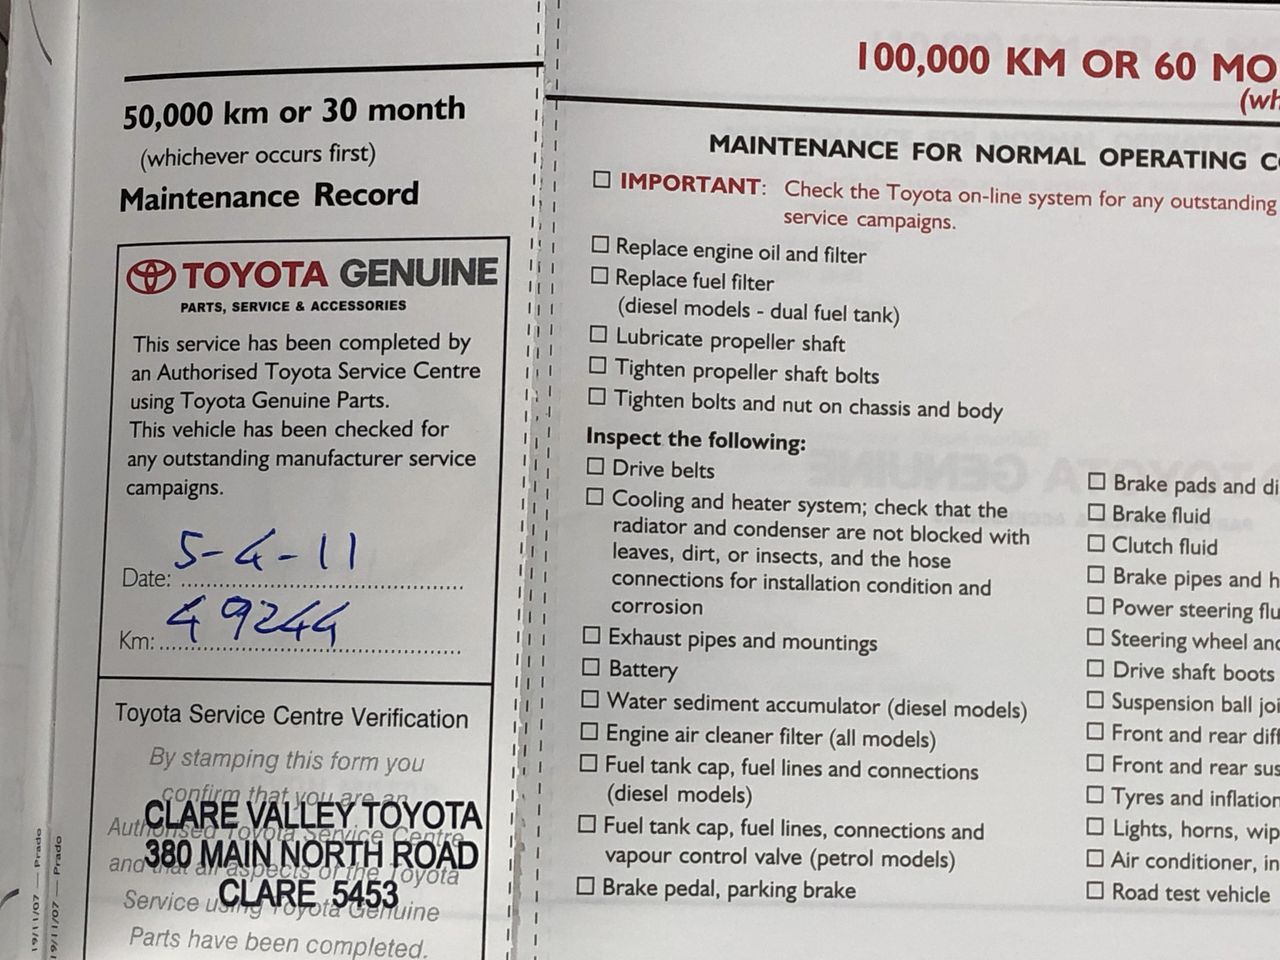 50,000 km or 30 month
(whichever occurs first)
Maintenance Record
TOYOTA GENUINE
PARTS, SERVICE & ACCESSORIES
This service has been completed by
an Authorised Toyota Service Centre
using Toyota Genuine Parts.
This vehicle has been checked for
any outstanding manufacturer service
campaigns.
Date: 5-4-11
Km: 49244
Toyota Service Centre Verification
By stamping this form you
confirm that you are an
Authorised Toyota Service Centre
and that all aspects of the Toyota
Service using Toyota Genuine
Parts have been completed.
CLARE VALLEY TOYOTA
380 MAIN NORTH ROAD
CLARE 5453
19/11/07 — Prado
19/11/07 — Prado
100,000 KM OR 60 MO
(wh
MAINTENANCE FOR NORMAL OPERATING CO
IMPORTANT: Check the Toyota on-line system for any outstanding
service campaigns.
Replace engine oil and filter
Replace fuel filter
(diesel models - dual fuel tank)
Lubricate propeller shaft
Tighten propeller shaft bolts
Tighten bolts and nut on chassis and body
Inspect the following:
Drive belts
Cooling and heater system; check that the
radiator and condenser are not blocked with
leaves, dirt, or insects, and the hose
connections for installation condition and
corrosion
Exhaust pipes and mountings
Battery
Water sediment accumulator (diesel models)
Engine air cleaner filter (all models)
Fuel tank cap, fuel lines and connections
(diesel models)
Fuel tank cap, fuel lines, connections and
vapour control valve (petrol models)
Brake pedal, parking brake
Brake pads and di
Brake fluid
Clutch fluid
Brake pipes and h
Power steering flu
Steering wheel and
Drive shaft boots
Suspension ball joi
Front and rear diff
Front and rear sus
Tyres and inflation
Lights, horns, wip
Air conditioner, in
Road test vehicle